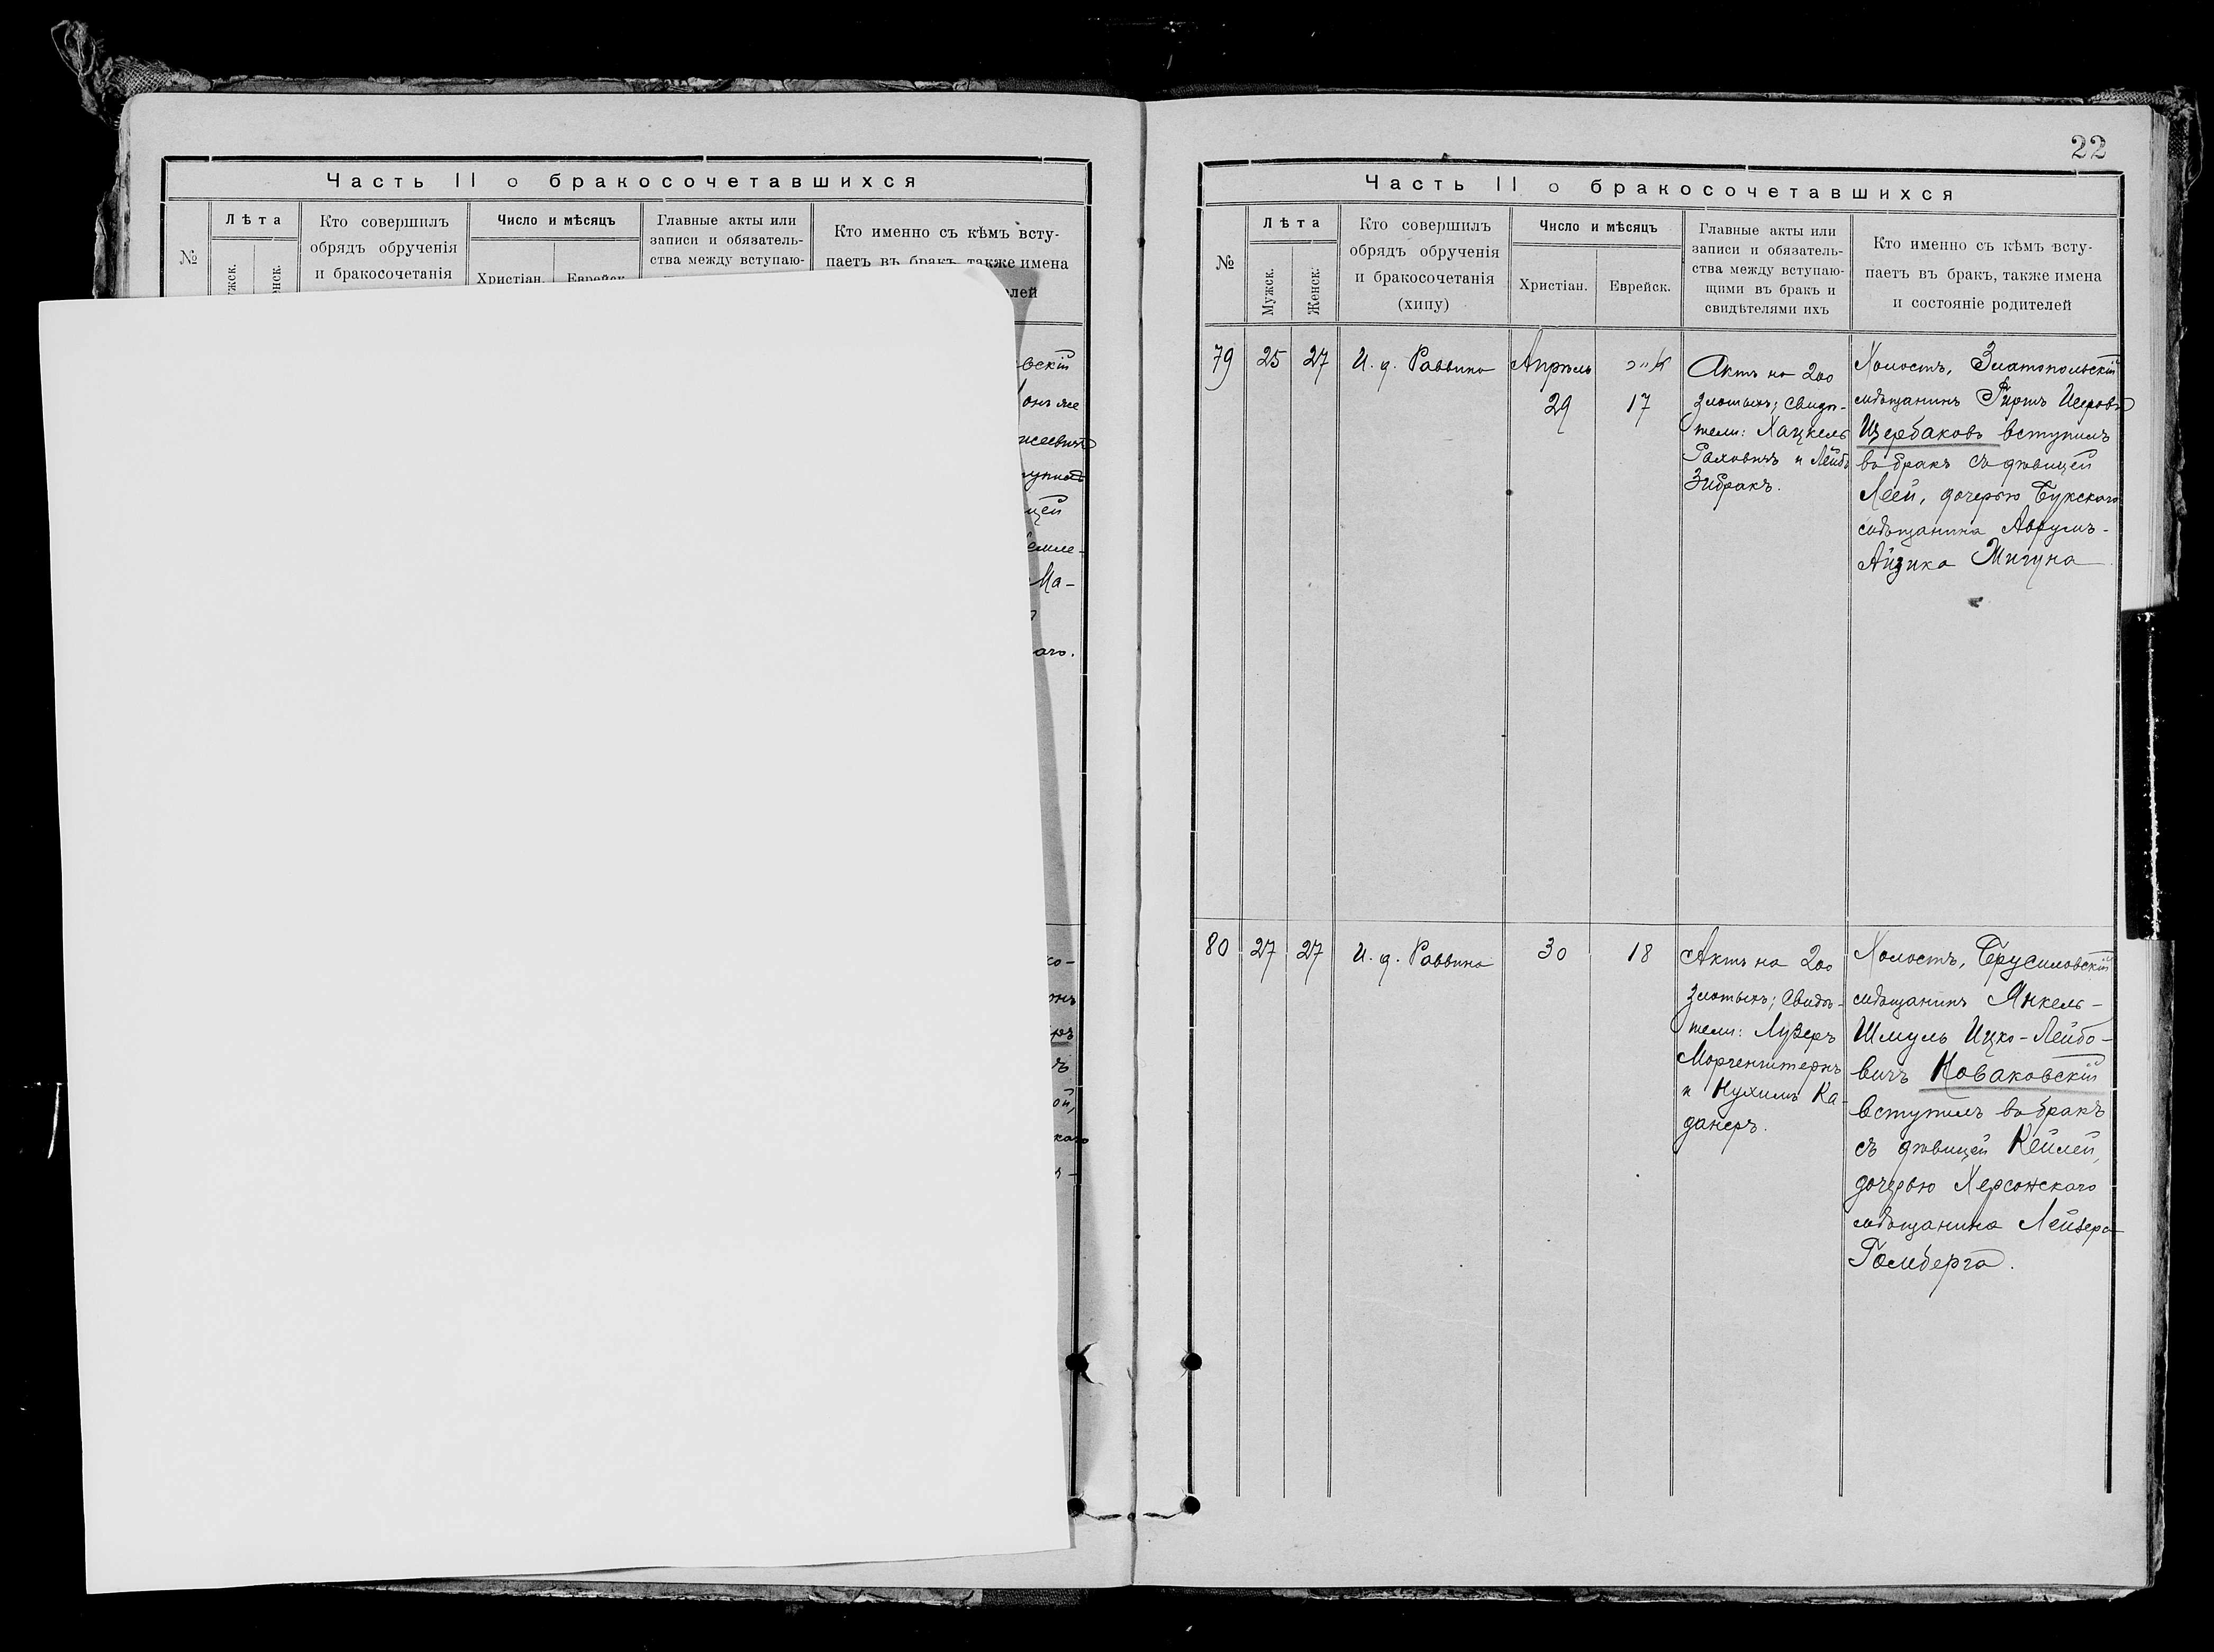 Часть II о бракосочетавшихся
№
Лѣта
Кто совершилъ
обрядъ обрученія
и бракосочетанія
Число и мѣсяцъ
Христіан.
Главные акты или
записи и обязатель-
ства между вступаю-
Кто именно съ кѣмъ всту-
паетъ въ бракъ, также имена
22
Часть II о бракосочетавшихся
№
Лѣта
Мужск.
Женск.
Кто совершилъ
обрядъ обрученія
и бракосочетанія
(хипу)
Число и мѣсяцъ
Христіан.
Еврейск.
Главные акты или
записи и обязатель-
ства между вступаю-
щими въ бракъ и
свидѣтелями ихъ
Кто именно съ кѣмъ всту-
паетъ въ бракъ, также имена
и состояніе родителей
79
25
27
И. д. Раввина
Апрѣль
29
17
Актъ на 200
злотыхъ; Свидѣ-
тели: Хацкель
и Лейбъ
Зибракъ.
Холостъ, Златопольскій
мѣщанинъ Гиршъ
Щербаковъ вступилъ
въ бракъ съ дѣвицей
Леей, дочерью Букскаго
мѣщанина Аврумъ-
Айзика Жигуна
80
27
27
И. д. Раввина
30
18
Актъ на 200
злотыхъ; Свидѣ-
тели: Лузеръ
Моргенштернъ
и Нухимъ Ка-
данеръ.
Холостъ, Брусиловскій
мѣщанинъ Янкель-
Шмуль Ицко-Лейбо-
вичъ Новаковскій
вступилъ въ бракъ
съ дѣвицей Кейлей,
дочерью Херсонскаго
мѣщанина Лейзера
Гомберга.